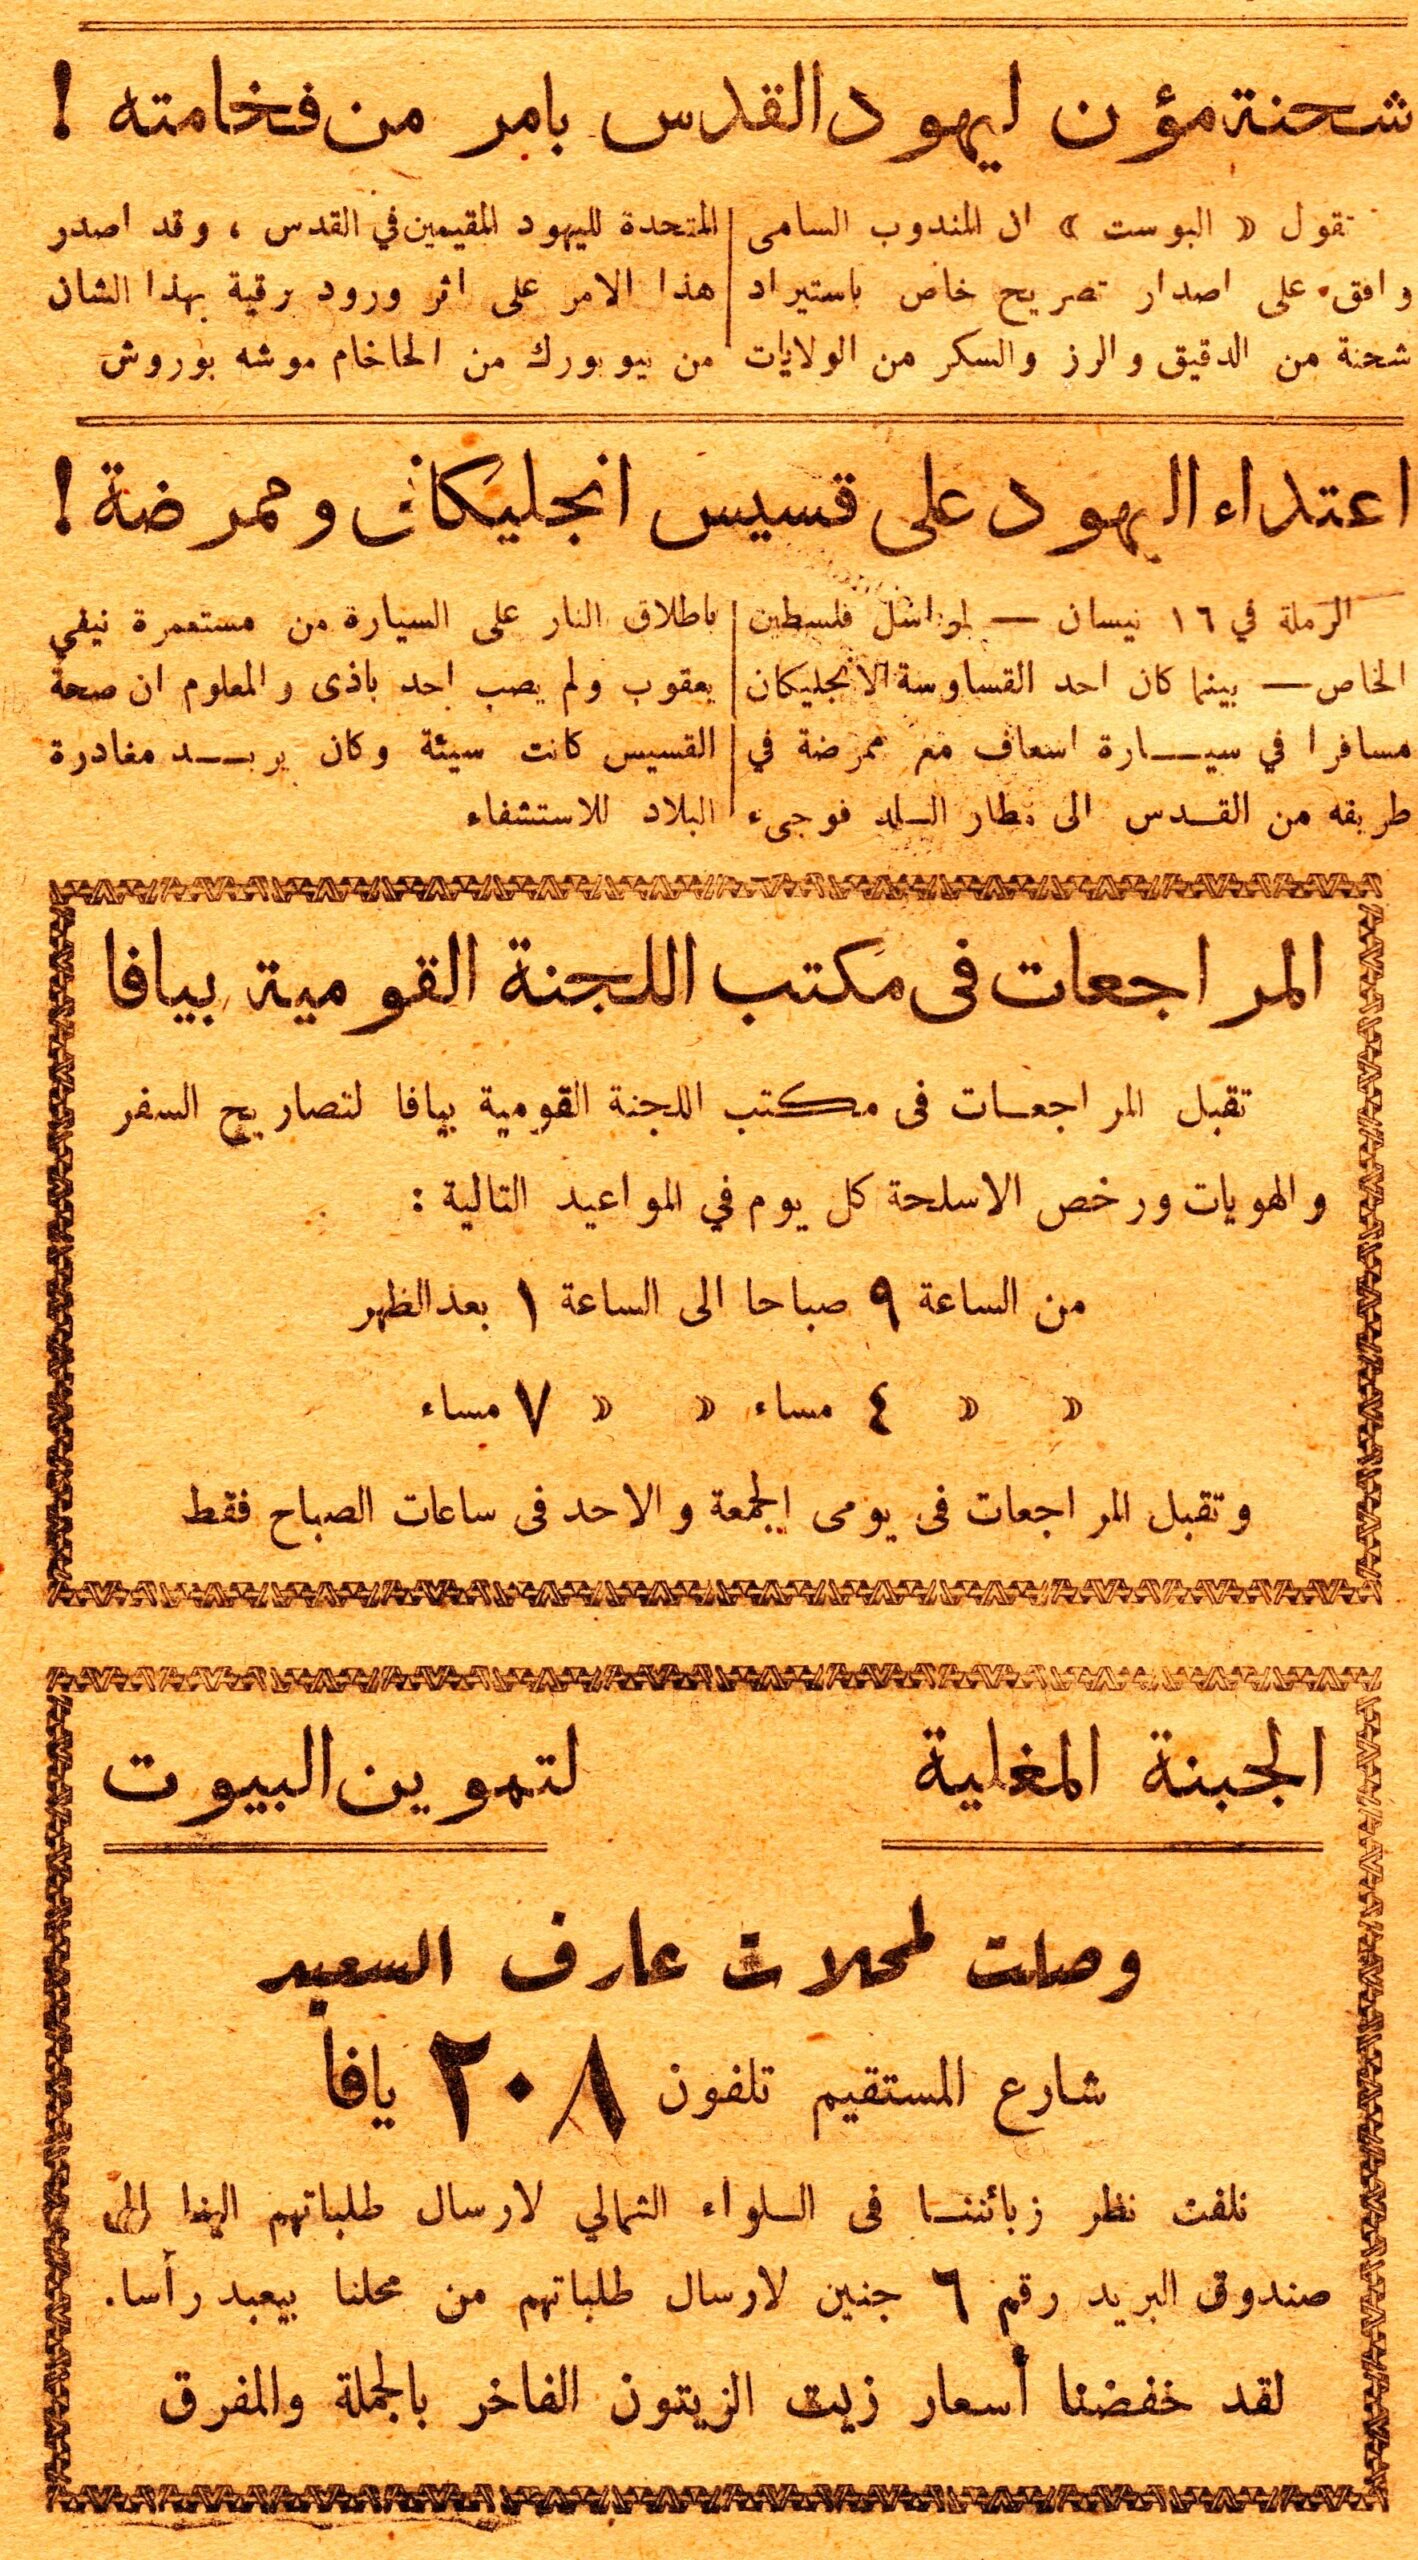 شحنة مؤن ليهود القدس بامر من فخامته !
تقول « البوست » ان المندوب السامى
وافق على اصدار تصريح خاص باستيراد
شحنة من الدقيق والرز والسكر من الولايات
المتحدة لليهود المقيمين في القدس ، وقد اصدر
هذا الامر على اثر ورود برقية بهذا الشان
من نيويورك من الحاخام موشه بوروش
اعتداء اليهود على قسيس انجليكانى وممرضة !
الرملة في ١٦ نيسان — لمراسل فلسطين
الخاص — بينما كان احد القساوسة الانجليكان
مسافرا في سيارة اسعاف مع ممرضة في
طريقه من القدس الى مطار اللد فوجىء
باطلاق النار على السيارة من مستعمرة نيفي
يعقوب ولم يصب احد باذى والمعلوم ان صحة
القسيس كانت سيئة وكان يريد مغادرة
البلاد للاستشفاء
المراجعات فى مكتب اللجنة القومية بيافا
تقبل المراجعات فى مكتب اللجنة القومية بيافا لتصاريح السفر
والهويات ورخص الاسلحة كل يوم في المواعيد التالية :
من الساعة ٩ صباحا الى الساعة ١ بعد الظهر
» » ٤ مساء » » ٧ مساء
وتقبل المراجعات فى يومى الجمعة والاحد فى ساعات الصباح فقط
الجبنة المغلية لتموين البيوت
وصلت لمحلات عارف السعيد
شارع المستقيم تلفون ٢٠٨ يافا
نلفت نظر زبائننا فى اللواء الشمالي لارسال طلباتهم الينا الى
صندوق البريد رقم ٦ جنين لارسال طلباتهم من محلنا بيعبد رأسا.
لقد خفضنا أسعار زيت الزيتون الفاخر بالجملة والمفرق